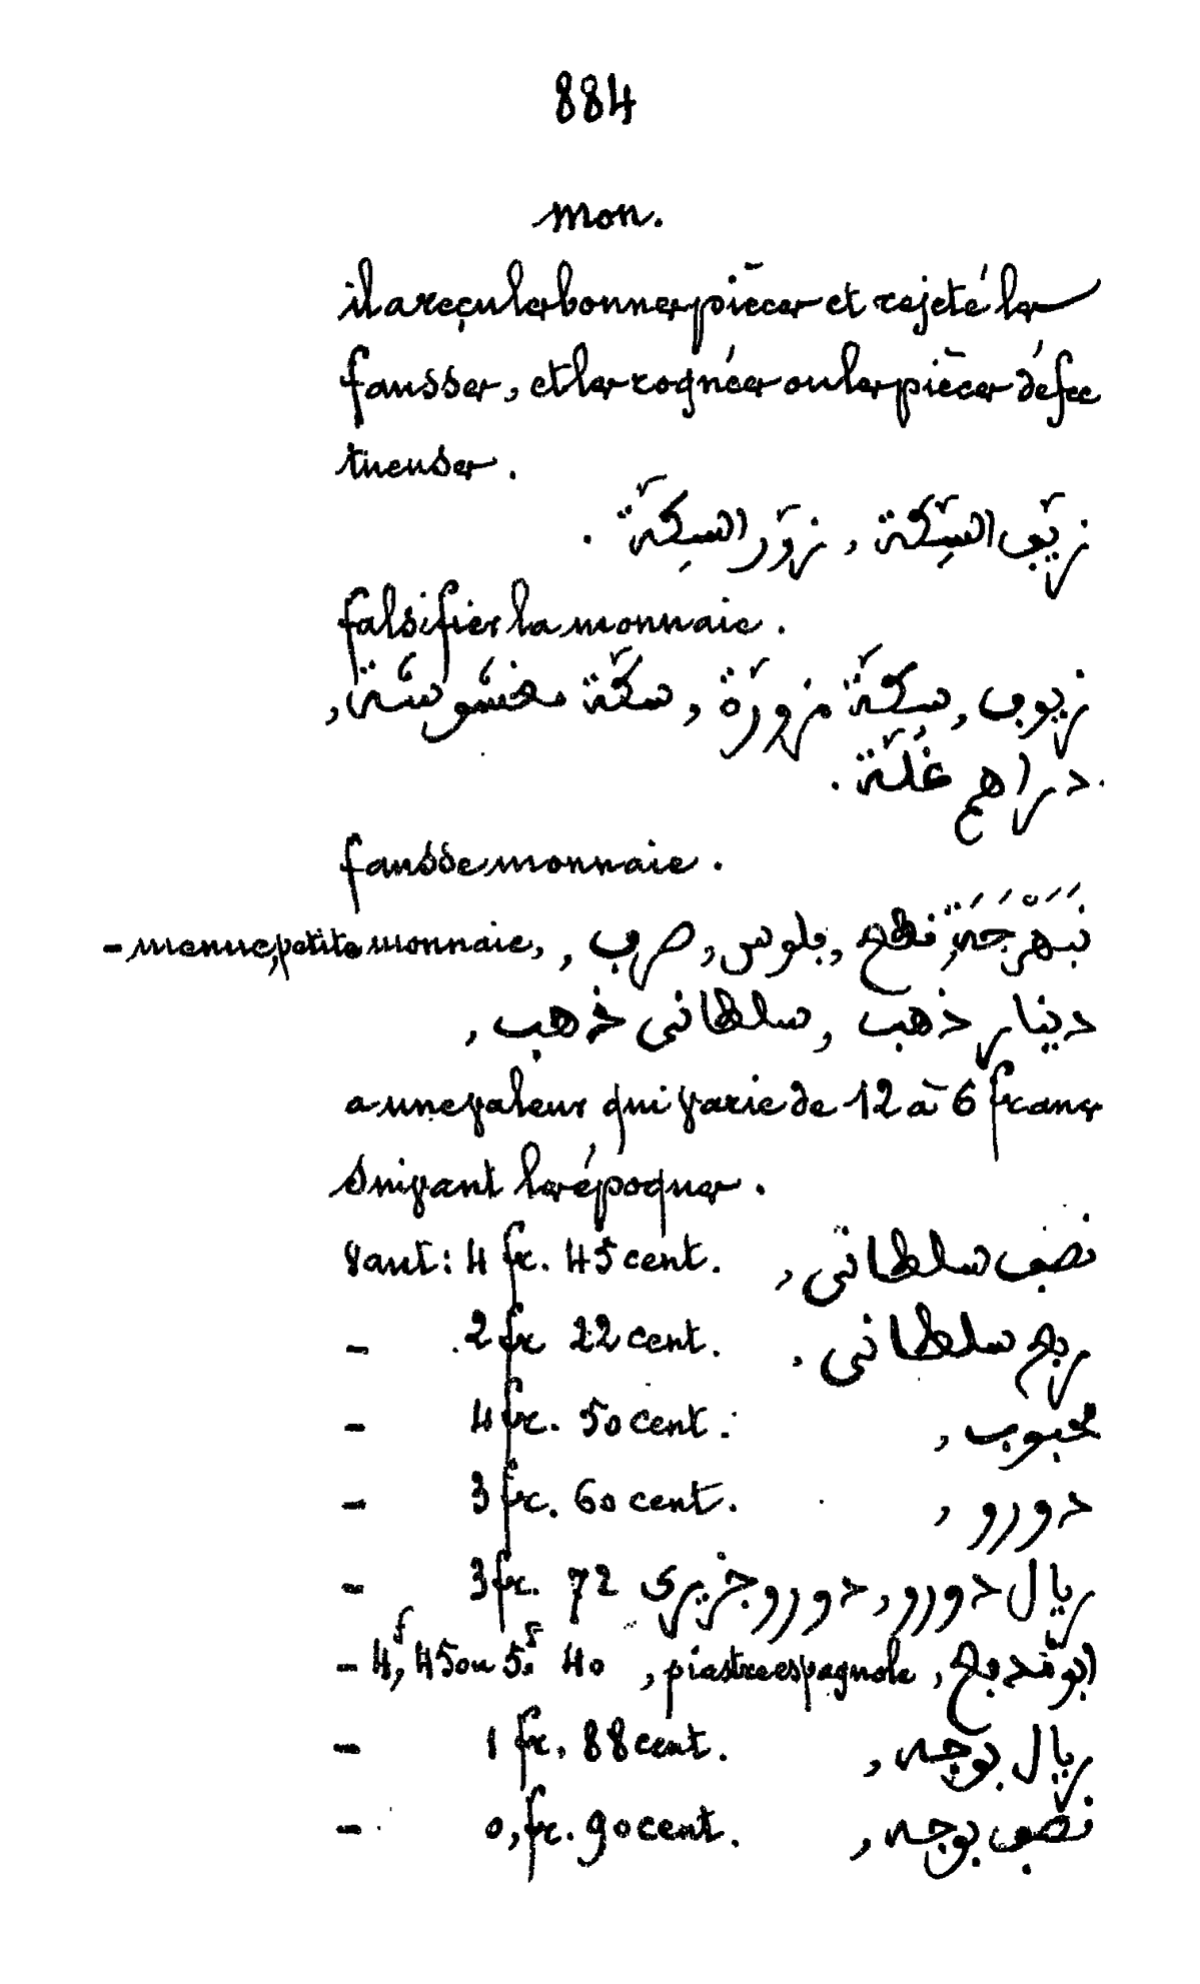 884
mon.
il a reçu les bonnes pièces et rejeté les
fausses, et les rognées ou les pièces défec
tueuses.
زيّف السِّكّة, زوّر السِكّة.
falsifier la monnaie.
زيوف, سِكّة مزورّة, سكّة مغشوشة,
دراهم غَلّة.
fausse monnaie.
نَبَهْرَجَة, قطع, فلوس, صرف, - menue, petite monnaie,
دينار ذهب, سلطانى ذهب,
a une valeur qui varie de 12 à 6 francs
suivant les époques.
نصف سلطانى, vaut: 4 fr. 45 cent.
ربع سلطانى, - 2 fr 22 cent.
محبوب, - 4 fr. 50 cent.
دورو, - 3 fr. 60 cent.
ريال دورو, دورو جزيرى - 3 fr. 72
ابو مدبع, piastre espagnole, - 4f, 45 ou 5f. 40
ريال بوجه, - 1 fr. 88 cent.
نصف بوجه, - 0, fr. 90 cent.